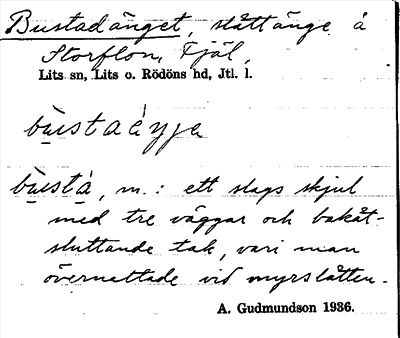 Bustadänget, slåttänge å
Storflon, Fjäl,
Lits sn, Lits o. Rödöns hd, Jtl. l.
bu̱staà̱yja
bù̱stà̱, m.: ett slags skjul
med tre väggar och bakåt-
sluttande tak, vari man
övernattade vid myrslåtten.
A. Gudmundson 1936.